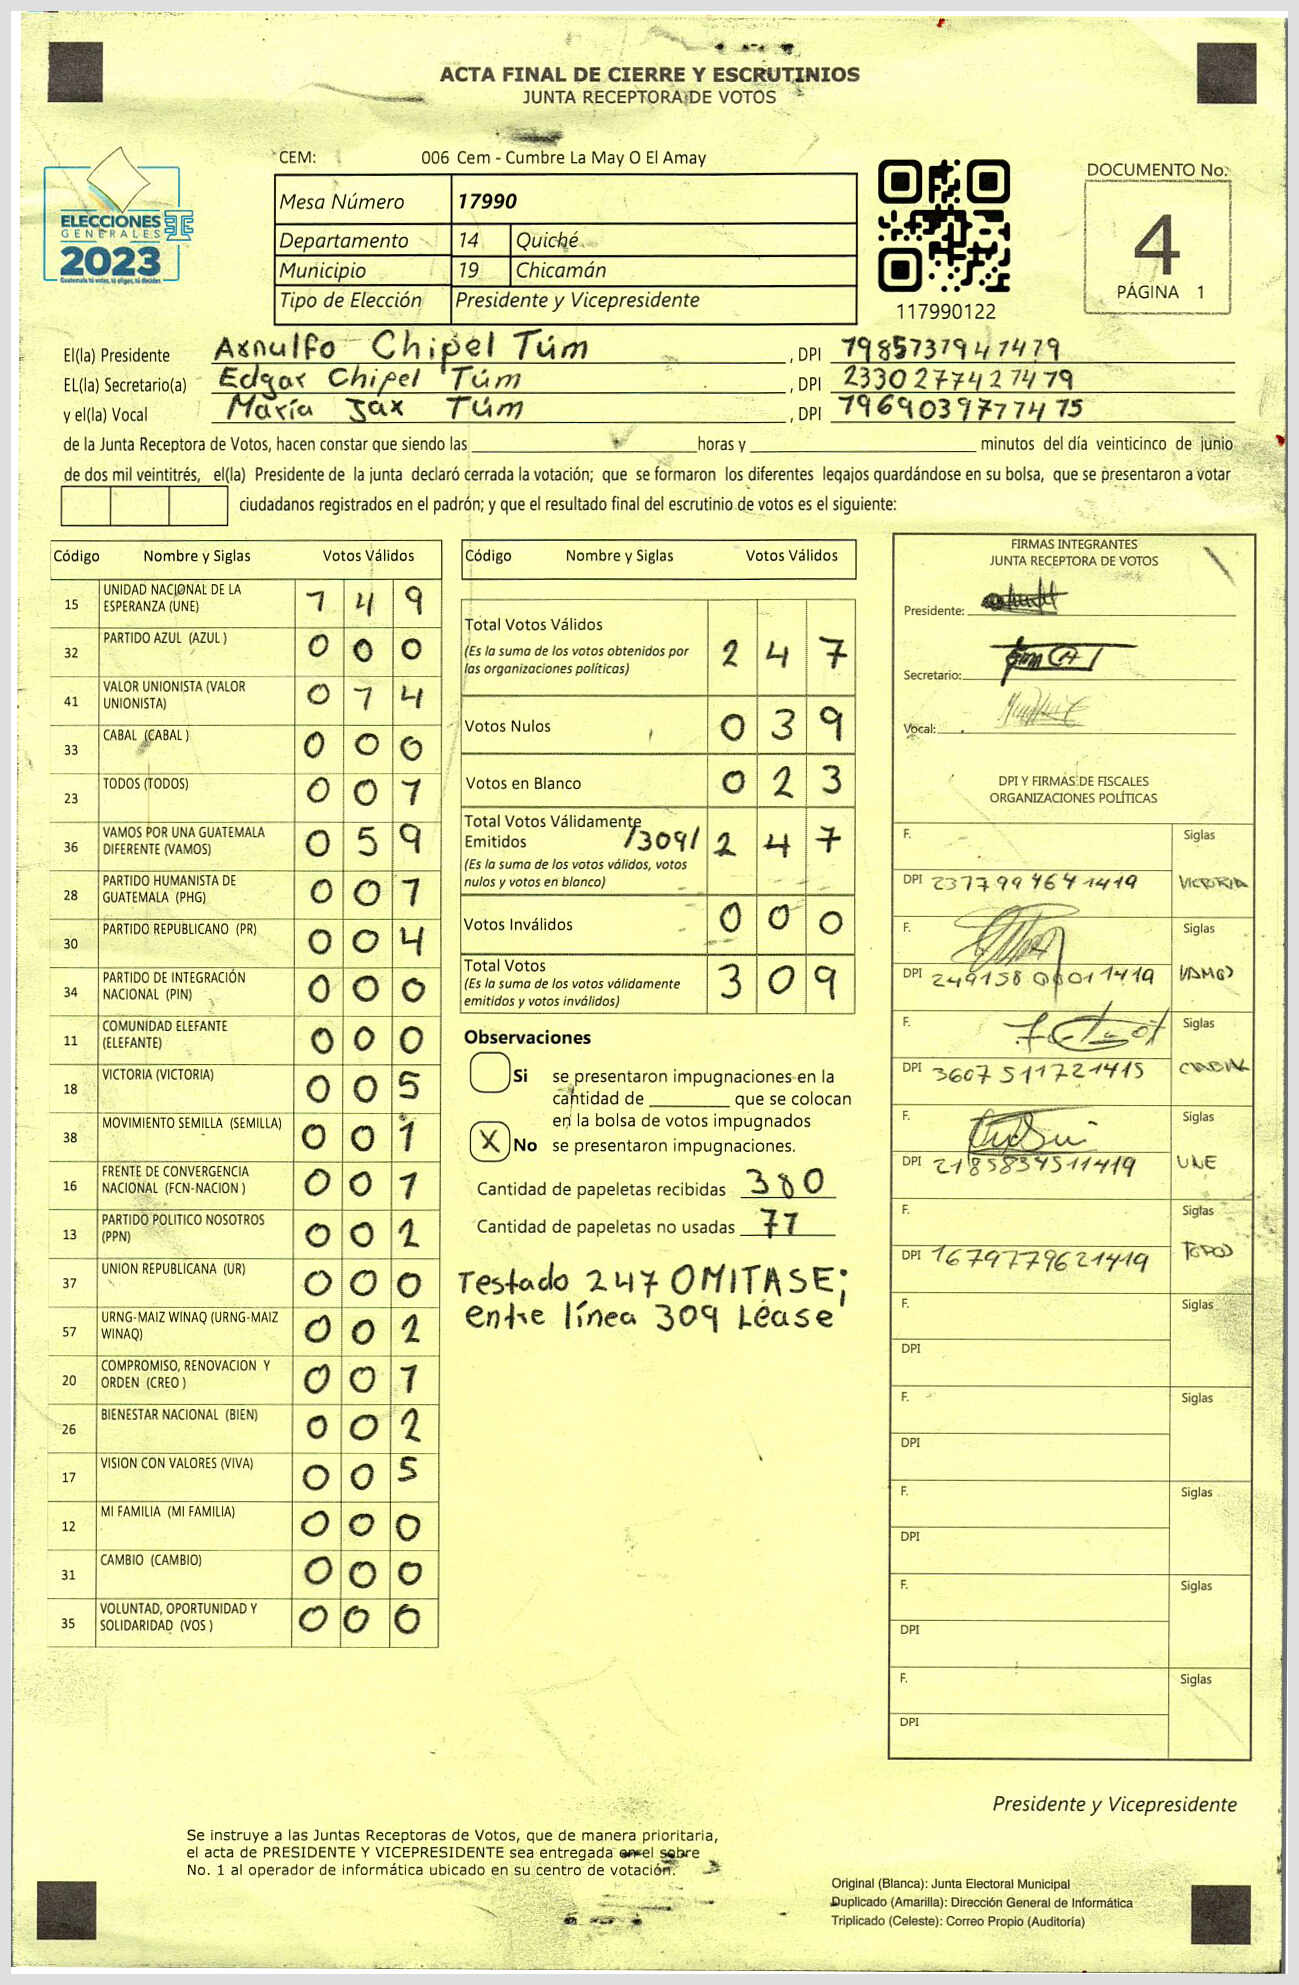 ACTA FINAL DE CIERRE Y ESCRUTINIOS
JUNTA RECEPTORA DE VOTOS
CEM: 006 Cem - Cumbre La May O El Amay
ELECCIONES
GENERALES
2023
Guatemala tú votas, tú eliges, tú decides
Mesa Número 17990
Departamento 14 Quiché
Municipio 19 Chicamán
Tipo de Elección Presidente y Vicepresidente
117990122
DOCUMENTO No.
4
PÁGINA 1
El(la) Presidente Arnulfo Chipel Túm, DPI 1985737941419
EL(la) Secretario(a) Edgar Chipel Túm, DPI 2330277421419
y el(la) Vocal María Jax Túm, DPI 1969039771415
de la Junta Receptora de Votos, hacen constar que siendo las horas y minutos del día veinticinco de junio
de dos mil veintitrés, el(la) Presidente de la junta declaró cerrada la votación; que se formaron los diferentes legajos guardándose en su bolsa, que se presentaron a votar
ciudadanos registrados en el padrón; y que el resultado final del escrutinio de votos es el siguiente:
Código Nombre y Siglas Votos Válidos
15 UNIDAD NACIONAL DE LA ESPERANZA (UNE) 1 4 9
32 PARTIDO AZUL (AZUL ) 0 0 0
41 VALOR UNIONISTA (VALOR UNIONISTA) 0 1 4
33 CABAL (CABAL ) 0 0 0
23 TODOS (TODOS) 0 0 1
36 VAMOS POR UNA GUATEMALA DIFERENTE (VAMOS) 0 5 9
28 PARTIDO HUMANISTA DE GUATEMALA (PHG) 0 0 1
30 PARTIDO REPUBLICANO (PR) 0 0 4
34 PARTIDO DE INTEGRACIÓN NACIONAL (PIN) 0 0 0
11 COMUNIDAD ELEFANTE (ELEFANTE) 0 0 0
18 VICTORIA (VICTORIA) 0 0 5
38 MOVIMIENTO SEMILLA (SEMILLA) 0 0 1
16 FRENTE DE CONVERGENCIA NACIONAL (FCN-NACION ) 0 0 1
13 PARTIDO POLITICO NOSOTROS (PPN) 0 0 2
37 UNION REPUBLICANA (UR) 0 0 0
57 URNG-MAIZ WINAQ (URNG-MAIZ WINAQ) 0 0 2
20 COMPROMISO, RENOVACION Y ORDEN (CREO ) 0 0 1
26 BIENESTAR NACIONAL (BIEN) 0 0 2
17 VISION CON VALORES (VIVA) 0 0 5
12 MI FAMILIA (MI FAMILIA) 0 0 0
31 CAMBIO (CAMBIO) 0 0 0
35 VOLUNTAD, OPORTUNIDAD Y SOLIDARIDAD (VOS ) 0 0 0
Código Nombre y Siglas Votos Válidos
Total Votos Válidos 2 4 7
(Es la suma de los votos obtenidos por
las organizaciones políticas)
Votos Nulos 0 3 9
Votos en Blanco 0 2 3
Total Votos Válidamente
Emitidos /309/ 2 4 7
(Es la suma de los votos válidos, votos
nulos y votos en blanco)
Votos Inválidos 0 0 0
Total Votos 3 0 9
(Es la suma de los votos válidamente
emitidos y votos inválidos)
Observaciones
Si se presentaron impugnaciones en la
cantidad de que se colocan
en la bolsa de votos impugnados
X No se presentaron impugnaciones.
Cantidad de papeletas recibidas 380
Cantidad de papeletas no usadas 71
Testado 247 OMITASE;
entre línea 309 Léase
FIRMAS INTEGRANTES
JUNTA RECEPTORA DE VOTOS
Presidente:
Secretario:
Vocal:
DPI Y FIRMAS DE FISCALES
ORGANIZACIONES POLÍTICAS
F. Siglas
DPI 2377994641419 VICTORIA
F. Siglas
DPI 2491580001419 VAMOS
F. Siglas
DPI 3607511721415
F. Siglas
DPI 2185834511419 UNE
F. Siglas
DPI 1679779621419 TODOS
F. Siglas
DPI
F. Siglas
DPI
F. Siglas
DPI
F. Siglas
DPI
F. Siglas
DPI
Presidente y Vicepresidente
Se instruye a las Juntas Receptoras de Votos, que de manera prioritaria,
el acta de PRESIDENTE Y VICEPRESIDENTE sea entregada en el sobre
No. 1 al operador de informática ubicado en su centro de votación.
Original (Blanca): Junta Electoral Municipal
Duplicado (Amarilla): Dirección General de Informática
Triplicado (Celeste): Correo Propio (Auditoría)